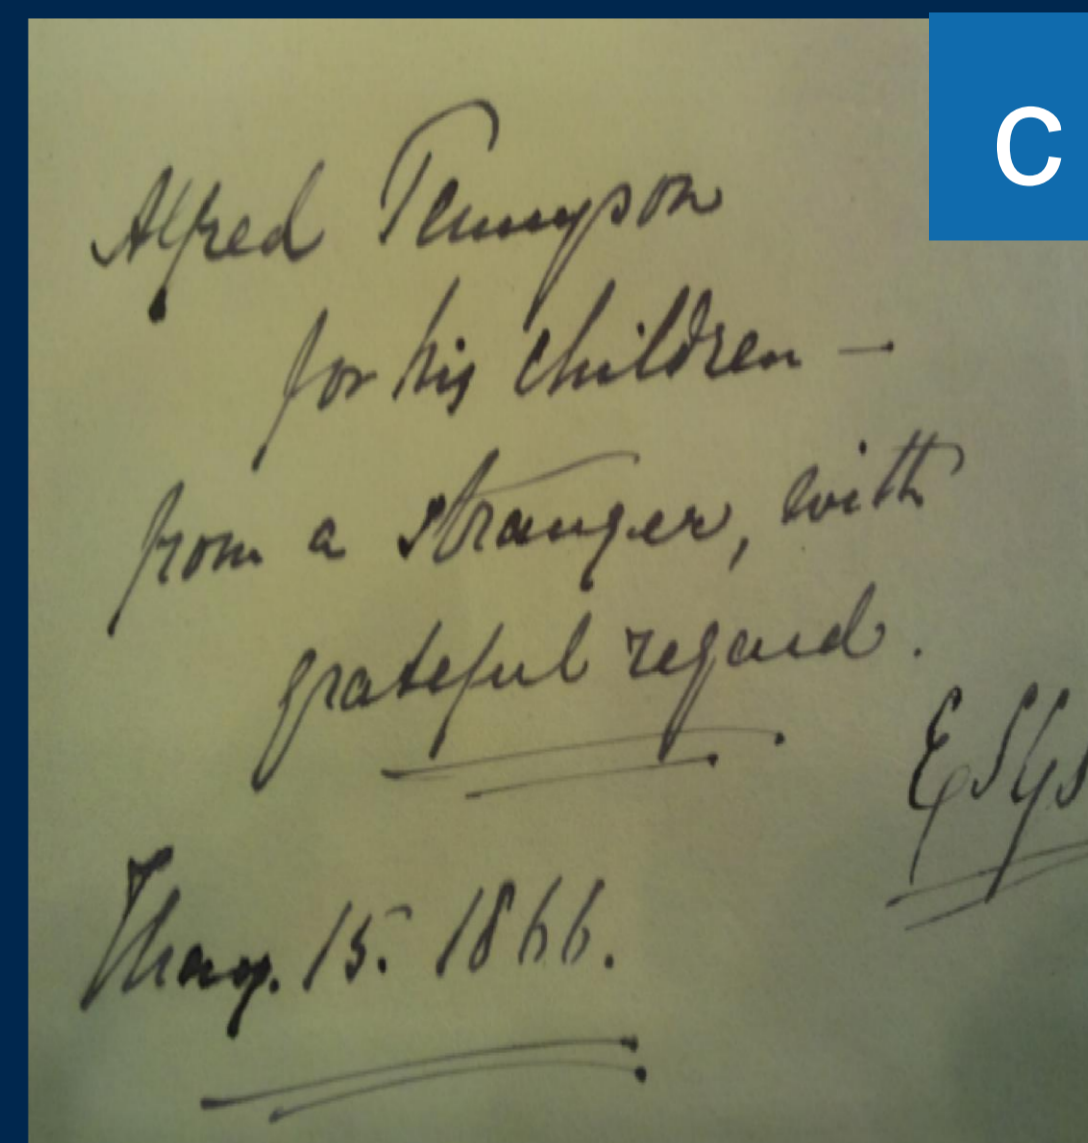 C
Alfred Tennyson
for his children —
from a stranger, with
grateful regard.
May. 15. 1866.